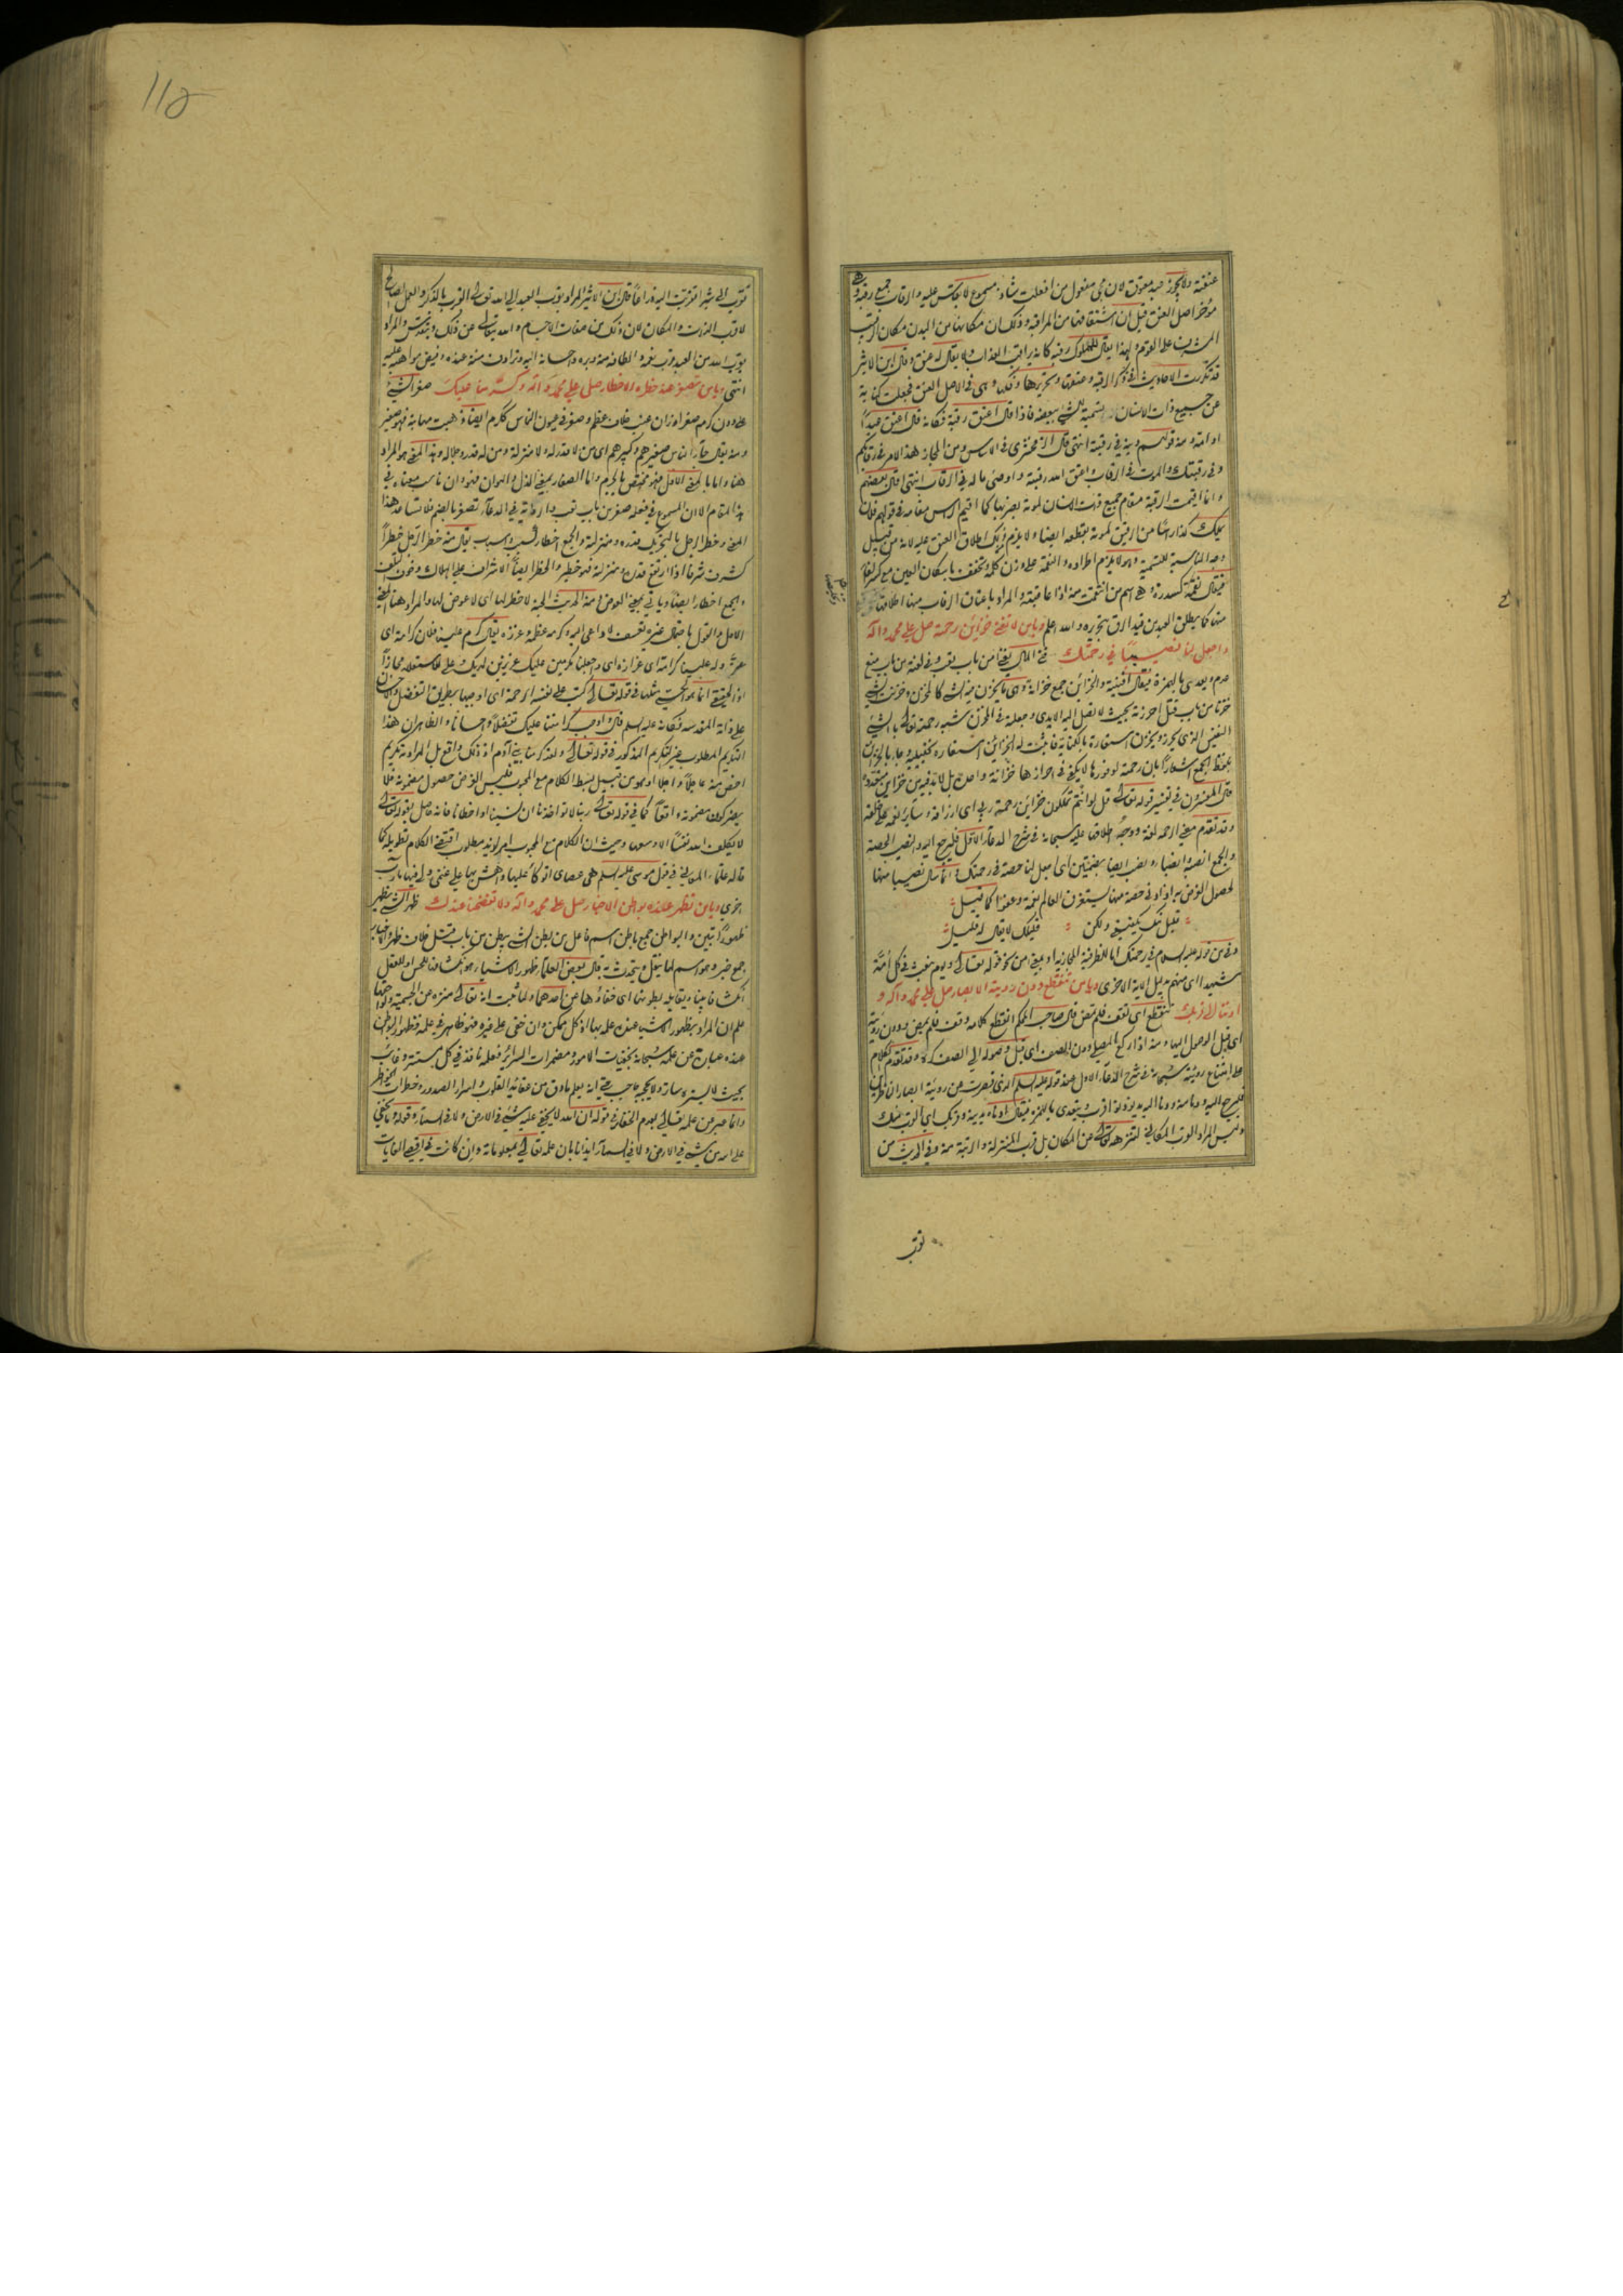 عتقته ولا يجوز عبد معتوق لان مجئ مفعول من افعلت شاذ مسموع لا يقاس عليه والرقاب جمع رقبة وهى
مؤخر اصل العنق قيل ان اشتقاقها من المراقبة وذلك ان مكانها من البدن مكان الرقيب
المشرف على القوم ولهذا يقال للمملوك رقبة كانه يراقب العذاب ولا يقال له عنق وقال ابن الاثير
قد تكررت الاحاديث فى ذكر الرقبة وعتقها وتحريرها وفكها وهى فى الاصل العنق فجعلت كناية
عن جميع ذات الانسان تسمية للشئ ببعضه فاذا قال اعتق رقبة فكانه قال اعتق عبدا
او امة ومنه قولهم دينه فى رقبته انتهى قال الزمخشرى فى الاساس ومن المجاز هذا الامر فى رقابكم
وفى رقبتك والموت فى الرقاب واعتق الله رقبته واوصى ماله فى الرقاب انتهى قال بعضهم
وانما اقيمت الرقبة مقام جميع ذات الانسان
وجه المناسبة للتسمية وهو لا يلزم اطراده والنقمة على وزن كلمة وتخفف باسكان العين مع كسر الفاء
فيقال نقمة كسدرة هى اسم من انتقمت منه اذا عاقبته والمراد باعتاق الرقاب منها اطلاقها
منها كما يطلق العبد من قيد الرق بتحريره والله اعلم ويا من لا تفنى خزائن رحمته صل على محمد وآله
واجعل لنا نصيبا فى رحمتك فنى المال يفنى من باب تعب وفى لغة من باب
والخزائن جمع خزانة وهى ما يخزن فيه الشئ كالمخزن وخزنت الشئ
خزنا من باب قتل احرزته بحيث لا تصل اليه الايدى وجعلته فى المخزن شبه رحمته تعالى بالشئ
النفيس الذى يحرز ويخزن استعارة بالكناية فاثبت له الخزائن استعارة تخييلية وجاء بالخزائن
بلفظ الجمع اشعارا بان رحمته لوفورها لا يكفى فى احرازها خزانة واحدة بل لا بد فيه من خزائن متعددة
قال المفسرون فى تفسير قوله تعالى قل لو انتم تملكون خزائن رحمة ربى اى ارزاقه وسائر نعمه على خلقه
وقد تقدم معنى الرحمة لغة ووجه اطلاقها عليه سبحانه فى شرح الدعاء الاول فليرجع اليه والنصيب الحصة
والجمع انصبة وانصباء ونصب ايضا بضمتين اى اجعل لنا حصة فى رحمتك وانما سأل نصيبا منها
لحصول الغرض به اذ ادنى حصة منها يستغرق العالم نعمة وعفوا كما قيل
قليل منك يكفينى ولكن قليلك لا يقال له قليل
وفى من قوله عليه السلام فى رحمتك اما للظرفية المجازية او بمعنى من نحو قوله تعالى ويوم نبعث فى كل امة
شهيدا اى منهم بدليل الآية الاخرى ويا من تنقطع دون رؤيته الابصار صل على محمد وآله و
ادننا الى قربك تنقطع اى تقف فلم تمض قال صاحب المحكم انقطع كلامه وقف فلم يمض ودون رؤيته
اى قبل الوصول اليها ومنه اذا ركع المصلى دون الصف اى قبل وصوله الى الصف وقد تقدم الكلام
على امتناع رؤيته سبحانه فى شرح الدعاء الاول عند قوله عليه السلام الذى قصرت عن رؤيته ابصار الناظرين
فليرجع اليه ودنا منه ودنا اليه يدنو دنوا قرب ويتعدى بالهمزة فيقال ادناه يدنيه وقربك اى القرب منك
وليس المراد القرب المكانى لتنزهه تعالى عن المكان بل قرب المنزلة والرتبة منه وفى الحديث من
تقرب
تقرب الى شبرا تقربت اليه ذراعا قال ابن الاثير المراد بقرب العبد الى الله تعالى القرب بالذكر والعمل الصالح
لا قرب الذات والمكان لان ذلك من صفات الاجسام والله يتعالى عن ذلك ويتقدس والمراد
بقرب الله من العبد قرب نعمه والطافه منه وبره واحسانه اليه وترادف مننه عنده وفيض مواهبه عليه
انتهى ويا من تصغر عند خطره الاخطار صل على محمد وآله وكرمنا عليك صغر الشئ
فلان عظم وصغر فى عيون الناس ككرم ايضا ذهبت مهابته فهو صغير
ومنه يقال جاء الناس صغيرهم وكبيرهم اى من لا قدر له ولا منزلة ومن له قدر وجلالة وهذا المعنى هو المراد
هنا واما بالمعنى الاول فهو مختص بالجرم واما الصغار بمعنى الذل والهوان فهو وان ناسب معناه فى
هذا المقام الا ان المسموع فى فعله صغر من باب تعب والرواية فى الدعاء تصغر بالضم فلا تساعد هذا
المعنى وخطر الرجل بالتحريك قدره ومنزلته والجمع اخطار كسبب واسباب يقال منه خطر الرجل خطرا
كشرف شرفا اذا ارتفع قدره ومنزلته فهو خطير والخطر ايضا الاشراف على الهلاك وخوف التلف
والجمع اخطار ايضا وياتى بمعنى العوض ومنه الحديث الجنة لا خطر لها اى لا عوض لها والمراد هنا المعنى
الاول والقول باحتمال غيره تعسف لا داعى اليه وكرمه عظمه وعززه يقال كرم علينا فلان كرامة اى
عز وله علينا كرامة اى عزازة اى واجعلنا مكرمين عليك عزيزين لديك
على ذاته المقدسة فكانه عليه السلام قال واوجب كرامتنا عليك تفضلا واحسانا والظاهر ان هذا
التكريم المطلوب غير التكريم المذكور فى قوله تعالى ولقد كرمنا بنى آدم اذ ذلك واقع بل المراد به تكريم
اخص منه عاجلا وآجلا او هو من قبيل بسط الكلام مع المحبوب فليس الغرض حصول مضمونه فلا
يضر كون مضمونه واقعا كما فى قوله تعالى ربنا لا تؤاخذنا ان نسينا او اخطأنا فانه حاصل بقوله تعالى
لا يكلف الله نفسا الا وسعها وحيث ان الكلام مع المحبوب امر لذيذ مطلوب اقتضى الكلام تطويله كما
قاله علماء المعانى فى قول موسى عليه السلام هى عصاى اتوكأ عليها واهش بها على غنمى ولى فيها مآرب
اخرى ويا من تظهر عنده بواطن الاخبار صل على محمد وآله ولا تفضحنا عندك ظهر الشئ يظهر
ظهورا تبين والبواطن جمع باطن اسم فاعل من بطن الشئ يبطن من باب قتل خلاف ظهر والاخبار
جمع خبر وهو اسم لما ينقل ويتحدث به قال بعض العلماء ظهور الاشياء هو انكشافها للحس او للعقل
انكشافا بينا ويقابله بطونها اى خفاؤها عن احدهما ولما ثبت انه تعالى منزه عن الجسمية ولواحقها
علم ان المراد بظهور الاشياء عنده علمه بها اذ كل ممكن وان خفى على غيره فهو ظاهر فى علمه فظهور البواطن
عنده عبارة عن علمه سبحانه بخفيات الامور ومضمرات السرائر فعلمه نافذ فى كل مستتر وغائب
بحيث لا يستره ساتر ولا يحجبه حاجب حتى انه يعلم ما دق من عقائد القلوب واسرار الصدور وخطرات الخواطر
وانما عبر عن علمه تعالى بعدم الخفاء فى قوله ان الله لا يخفى عليه شئ فى الارض ولا فى السماء وقوله وما يخفى
على الله من شئ فى الارض ولا فى السماء ايذانا بان علمه تعالى بمعلوماته وان كانت فى اقصى الغايات